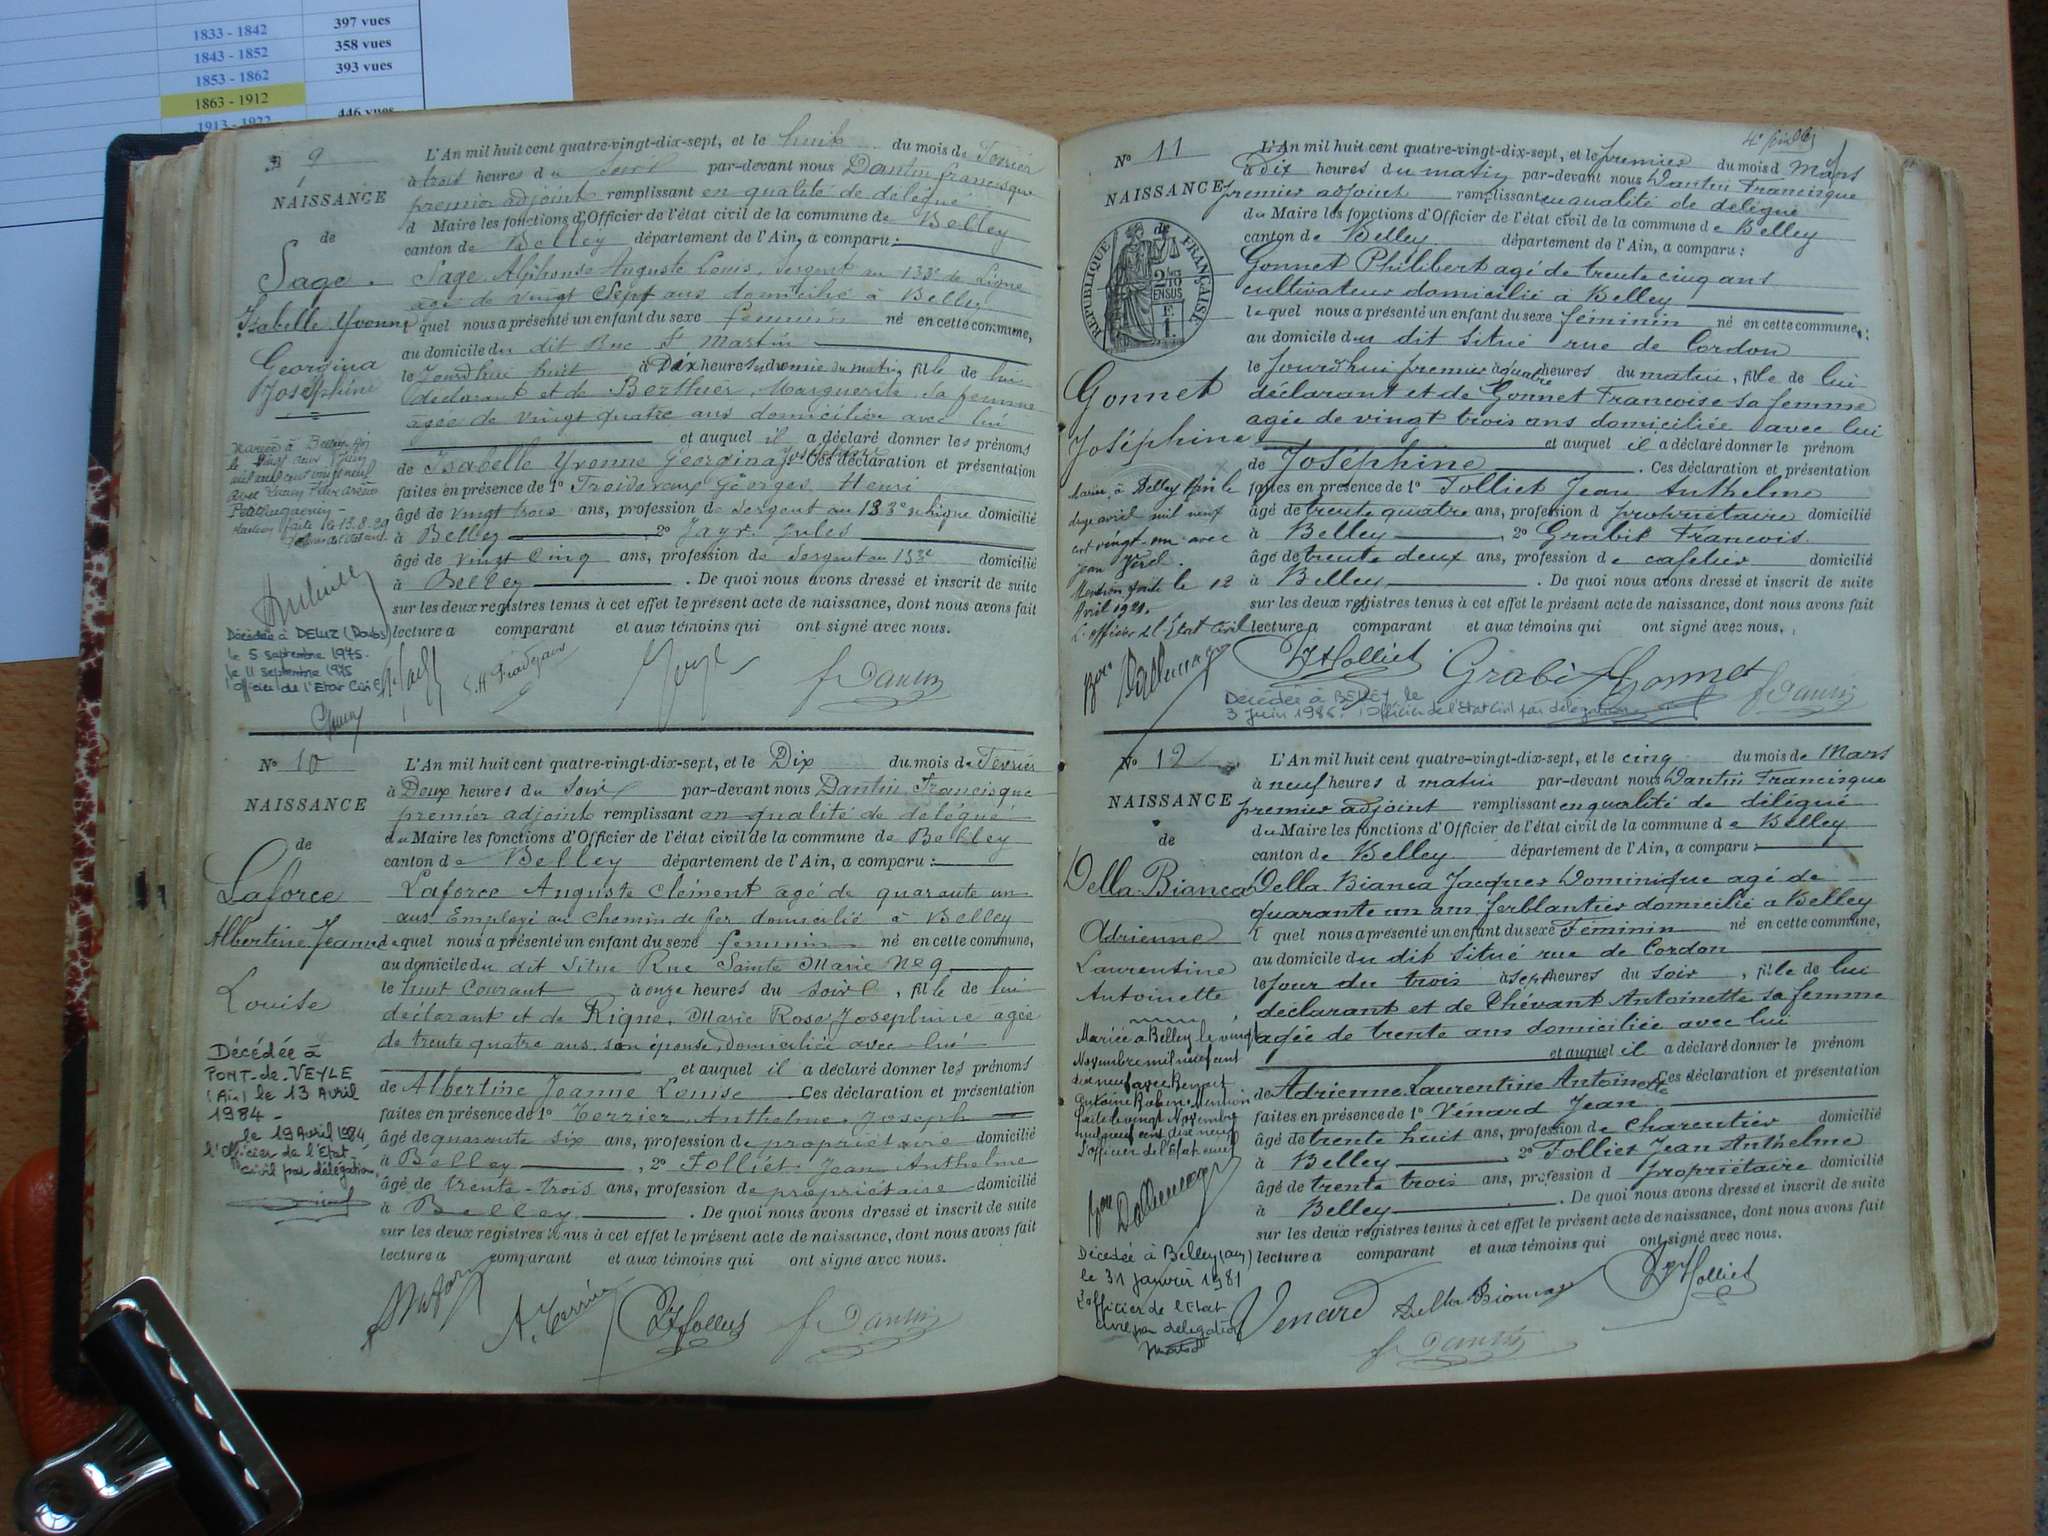 1833 - 1842 397 vues
1843 - 1852 358 vues
1853 - 1862 393 vues
1863 - 1912
1913 - 1922 446 vues
N° 9
NAISSANCE
de
Sage
Isabelle Yvonne
Georgina
Joséphine
Mariée à Belley Ain
le vingt deux Juin
mil neuf cent vingt neuf
avec
Mention faite le 13.8.29
Décédée à DELUZ (Doubs)
le 5 septembre 1975.
le 11 septembre 1975
l'Officier de l'Etat Civil
L'An mil huit cent quatre-vingt-dix-sept, et le huit du mois de Février
à trois heures du soir par-devant nous Dantin francisque
premier adjoint remplissant en qualité de délégué
d Maire les fonctions d'Officier de l'état civil de la commune de Belley
canton de Belley département de l'Ain, a comparu :
Sage Alphonse Auguste Louis, Sergent au 133e de Ligne
agé de vingt Sept ans domicilié à Belley
quel nous a présenté un enfant du sexe féminin né en cette commune,
au domicile du dit Rue St Martin
le Jourd'hui huit à Dix heures et demie du matin, fille de lui
déclarant et de Berthier, Marguerite, sa femme
agée de vingt quatre ans domiciliée avec lui
et auquel il a déclaré donner les prénoms
de Isabelle Yvonne Georgina Joséphine Ces déclaration et présentation
faites en présence de 1° Froidevaux Georges Henri
âgé de vingt trois ans, profession de Sergent au 133e de ligne domicilié
à Belley, 2° Jayr Jules
âgé de vingt cinq ans, profession de sergent au 133e domicilié
à Belley. De quoi nous avons dressé et inscrit de suite
sur les deux registres tenus à cet effet le présent acte de naissance, dont nous avons fait
lecture a comparant et aux témoins qui ont signé avec nous.
f Dantin
N° 10
NAISSANCE
de
Laforce
Albertine Jeanne
Louise
Décédée à
PONT-de-VEYLE
(Ain) le 13 Avril
1984 -
le 19 Avril 1984
l'Officier de l'Etat
Civil par délégation,
L'An mil huit cent quatre-vingt-dix-sept, et le Dix du mois de Février
à Deux heures du Soir par-devant nous Dantin Francisque
premier adjoint remplissant en qualité de délégué
du Maire les fonctions d'Officier de l'état civil de la commune de Belley
canton de Belley département de l'Ain, a comparu :
Laforce Auguste Clément agé de quarante un
ans Employé au Chemin de fer domicilié à Belley
lequel nous a présenté un enfant du sexe féminin né en cette commune,
au domicile du dit Situé Rue Sainte Marie N° 9
le huit Courant à onze heures du soir, fille de lui
déclarant et de Rigne, Marie Rose Joséphine agée
de trente quatre ans son épouse, domiciliée avec lui
et auquel il a déclaré donner les prénoms
de Albertine Jeanne Louise. Ces déclaration et présentation
faites en présence de 1° Terrier Anthelme Joseph
âgé de quarante six ans, profession de propriétaire domicilié
à Belley, 2° Folliet Jean Anthelme
âgé de trente-trois ans, profession de propriétaire domicilié
à Belley. De quoi nous avons dressé et inscrit de suite
sur les deux registres tenus à cet effet le présent acte de naissance, dont nous avons fait
lecture a comparant et aux témoins qui ont signé avec nous.
A. Terrier
f Dantin
N° 11
NAISSANCE
de
RÉPUBLIQUE FRANÇAISE
2/10 EN SUS
Gonnet
Joséphine
Mariée à Belley Ain le
douze avril mil neuf
cent vingt-un avec
Mention faite le 12
Avril 1921.
L'officier de l'Etat Civil
L'An mil huit cent quatre-vingt-dix-sept, et le premier du mois d Mars
à dix heures du matin par-devant nous Dantin Francisque
premier adjoint remplissant en qualité de délégué
du Maire les fonctions d'Officier de l'état civil de la commune de Belley
canton de Belley département de l'Ain, a comparu :
Gonnet Philibert agé de trente cinq ans
cultivateur domicilié à Belley
lequel nous a présenté un enfant du sexe féminin né en cette commune,
au domicile du dit situé rue de Cordon
le Jourd'hui premier à quatre heures du matin, fille de lui
déclarant et de Gonnet Françoise sa femme
agée de vingt trois ans domiciliée avec lui
et auquel il a déclaré donner le prénom
de Joséphine. Ces déclaration et présentation
faites en présence de 1° Folliet Jean Anthelme
âgé de trente quatre ans, profession d propriétaire domicilié
à Belley, 2° Grabit Francois
âgé de trente deux ans, profession de cafetier domicilié
à Belley. De quoi nous avons dressé et inscrit de suite
sur les deux registres tenus à cet effet le présent acte de naissance, dont nous avons fait
lecture a comparant et aux témoins qui ont signé avec nous.
Folliet Grabit Gonnet f Dantin
Décédée à BELLEY le
3 Juin 1986. l'Officier de l'Etat Civil par délégation
N° 12
NAISSANCE
de
Della Bianca
Adrienne
Laurentine
Antoinette
Mariée à Belley le vingt
Novembre mil neuf cent
dix neuf avec
Mention
faite le vingt Novembre
mil neuf cent dix neuf
L'officier de l'Etat civil
Décédée à Belley (Ain)
le 31 janvier 1981
L'officier de l'Etat
civil par délégation
L'An mil huit cent quatre-vingt-dix-sept, et le cinq du mois de Mars
à neuf heures d matin par-devant nous Dantin Francisque
premier adjoint remplissant en qualité de délégué
du Maire les fonctions d'Officier de l'état civil de la commune de Belley
canton de Belley département de l'Ain, a comparu :
Della Bianca Jacques Dominique agé de
quarante un ans ferblantier domicilié à Belley
l quel nous a présenté un enfant du sexe Féminin né en cette commune,
au domicile du dit situé rue de Cordon
le jour du trois à sept heures du soir, fille de lui
déclarant et de Chévant Antoinette sa femme
agée de trente ans domiciliée avec lui
et auquel il a déclaré donner le prénom
de Adrienne Laurentine Antoinette Ces déclaration et présentation
faites en présence de 1° Vénard Jean
âgé de trente huit ans, profession de Charentier domicilié
à Belley, 2° Folliet Jean Anthelme
âgé de trente trois ans, profession d propriétaire domicilié
à Belley. De quoi nous avons dressé et inscrit de suite
sur les deux registres tenus à cet effet le présent acte de naissance, dont nous avons fait
lecture a comparant et aux témoins qui ont signé avec nous.
Venard Della Bianca Folliet
f Dantin